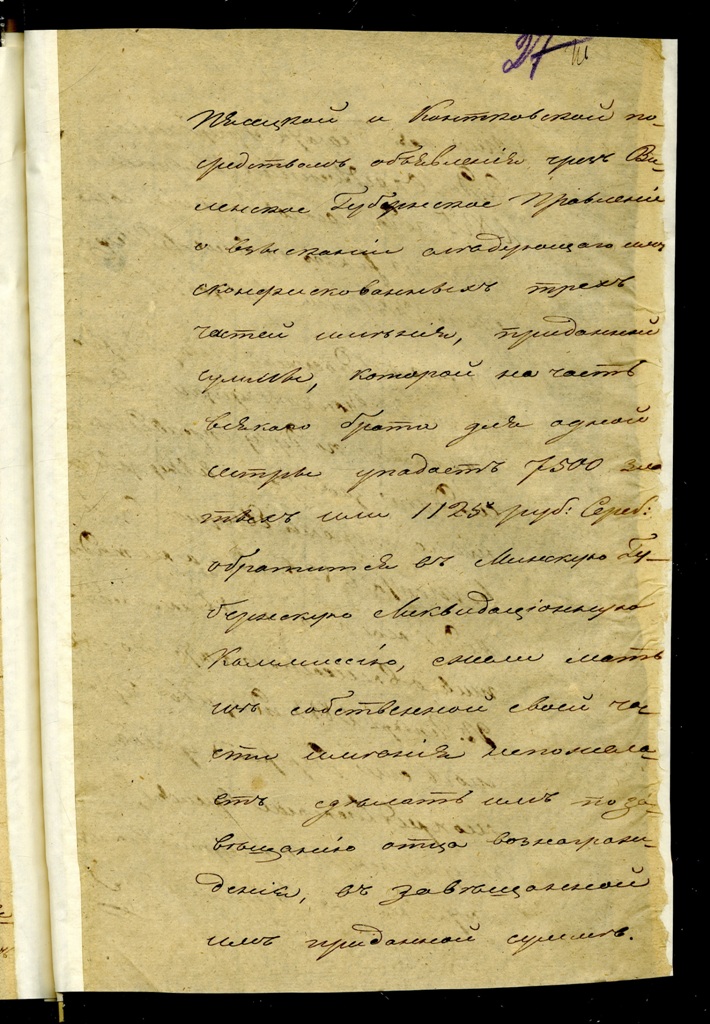 27
и Контковской по-
средствомъ объявленія чрезъ Ви-
ленское Губернское Правленіе
о взысканіи слѣдующаго имъ
сконфискованныхъ трехъ
частей имѣнія, приданной
суммы, которой на часть
всякаго брата для одной
сестры упадаетъ 7500 зло
тыхъ или 1125 руб: Сереб:
обратится въ Минскую Гу-
бернскую Ликвидаціонную
Коммиссію, ежели мать
изъ собственной своей ча-
сти имѣнія непожела-
етъ сдѣлать имъ по за-
вѣщанію отца вознаграж-
денія, въ завѣщанной
имъ приданной суммѣ.